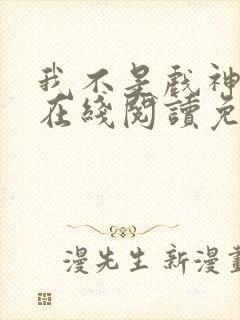 我不是戏神
在綫閱讀免
漫先生新漫畫